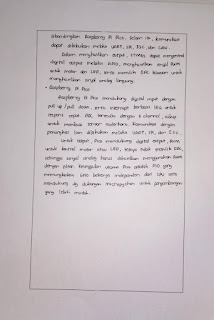 dibandingkan Raspberry Pi Pico. Selain itu, komunikasi
dapat dilakukan melalui UART, SPI, I2C dan CAN.
Dalam menghasilkan output, STM32 dapat mengontrol
digital output melalui GPIO, menghasilkan sinyal PWM
untuk motor dan LED, serta memiliki DAC bawaan untuk
menghasilkan sinyal analog langsung.
• Raspberry Pi Pico
Raspberry Pi Pico mendukung digital input dengan
pull up / pull down, serta interrupt berbasis IRQ untuk
respons cepat. ADC tersedia dengan 3 channel, cukup
untuk membaca sensor sederhana. Komunikasi dengan
perangkat lain dilakukan melalui UART, SPI, dan I2C.
Untuk output, Pico mendukung digital output, PWM,
untuk kontrol motor atau LED, tetapi tidak memiliki DAC,
sehingga sinyal analog harus dihasilkan menggunakan PWM
dengan filter. Keunggulan utama Pico adalah PIO yang
memungkinkan GPIO bekerja independen dari CPU serta
mendukung dukungan micropython untuk pengembangan
yang lebih mudah.